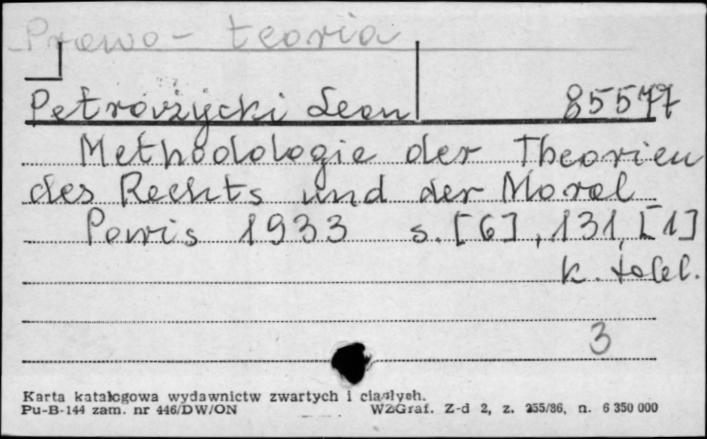 Prawo - teoria
Petrażycki Leon 85577
Methodologie der Theorien
des Rechts und der Moral
Paris 1933 s. [6], 131, [1]
k. tabl.
3
Karta katalogowa wydawnictw zwartych i ciągłych.
Pu-B-144 zam. nr 446/DW/ON WZGraf. Z-d 2, z. 255/86, n. 6 350 000